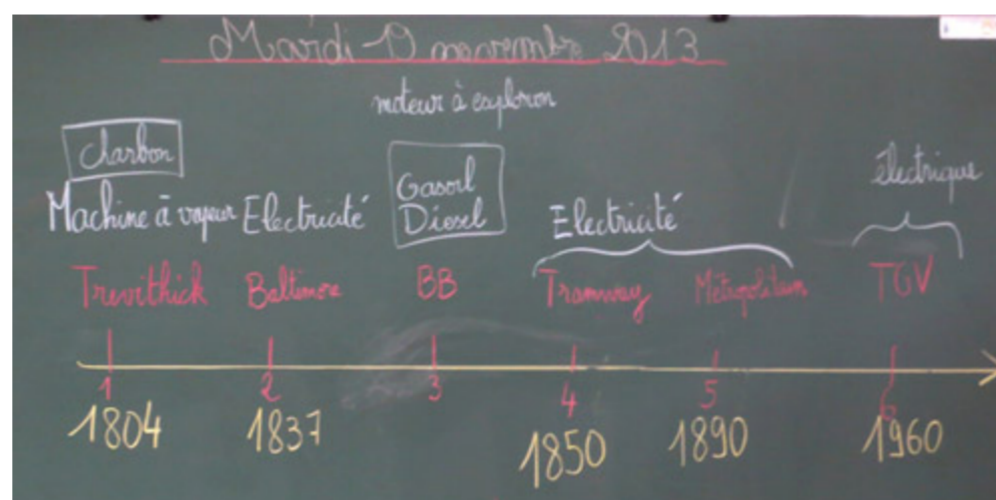 Mardi 19 novembre 2013
moteur à explosion
Charbon
Machine à vapeur Electricité
Gasoil
Diesel
Electricité
électrique
Trevithick Baltimore BB Tramway Métropolitain TGV
1 2 3 4 5 6
1804 1837 1850 1890 1960